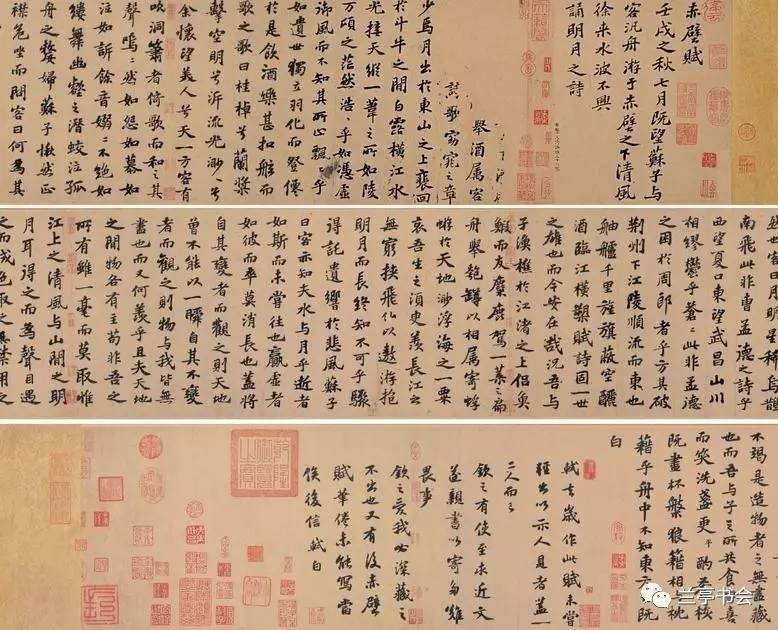 赤壁賦
壬戌之秋七月既望蘇子與
客汎舟游于赤壁之下清風
徐来水波不興
誦明月之詩
舉酒屬客
歌窈窕之章
少焉月出於東山之上裴回
於斗牛之間白露橫江水
光接天縱一葦之所如陵
萬頃之茫然浩浩乎如馮虛
御風而不知其所止飄飄乎
如遺世獨立羽化而登僊
於是飲酒樂甚扣舷而
歌之歌曰桂棹兮蘭槳
擊空明兮泝流光渺渺兮
余懷望美人兮天一方客有
吹洞簫者倚歌而和之其
聲嗚嗚然如怨如慕如
泣如訴餘音嫋嫋不絕如
縷舞幽壑之潛蛟泣孤
舟之嫠婦蘇子愀然正
襟危坐而問客曰何為其
然也客曰月明星稀烏鵲
南飛此非曹孟德之詩乎
西望夏口東望武昌山川
相繆鬱乎蒼蒼此非孟德
之困於周郎者乎方其破
荆州下江陵順流而東也
舳艫千里旌旗蔽空釃
酒臨江橫槊賦詩固一世
之雄也而今安在哉況吾與
子漁樵於江渚之上侣魚
鰕而友麋鹿駕一葉之扁
舟舉匏樽以相屬寄蜉
蝣於天地渺浮海之一粟
哀吾生之須臾羡長江之
無窮挾飛仙以遨游抱
明月而長終知不可乎驟
得託遺響於悲風蘇子
曰客亦知夫水與月乎逝者
如斯而未嘗往也贏虛者
如彼而卒莫消長也蓋將
自其變者而觀之則天地
曾不能以一瞬自其不變
者而觀之則物與我皆無
盡也而又何羡乎且夫天地
之間物各有主苟非吾之
所有雖一毫而莫取惟
江上之清風與山間之明
月耳得之而為聲目遇
之而成色取之無禁用之
不竭是造物者之無盡藏
也而吾與子之所共食客喜
而笑洗盞更酌肴核
既盡杯盤狼籍相與枕
藉乎舟中不知東方之既
白
軾去歲作此賦未嘗
輕出以示人見者蓋一
二人而已
欽之有使至求近文
遂親書以寄多難
畏事
欽之愛我必深藏之
不出也又有後赤壁
賦筆倦未能寫當
俟後信軾白
兰亭书会